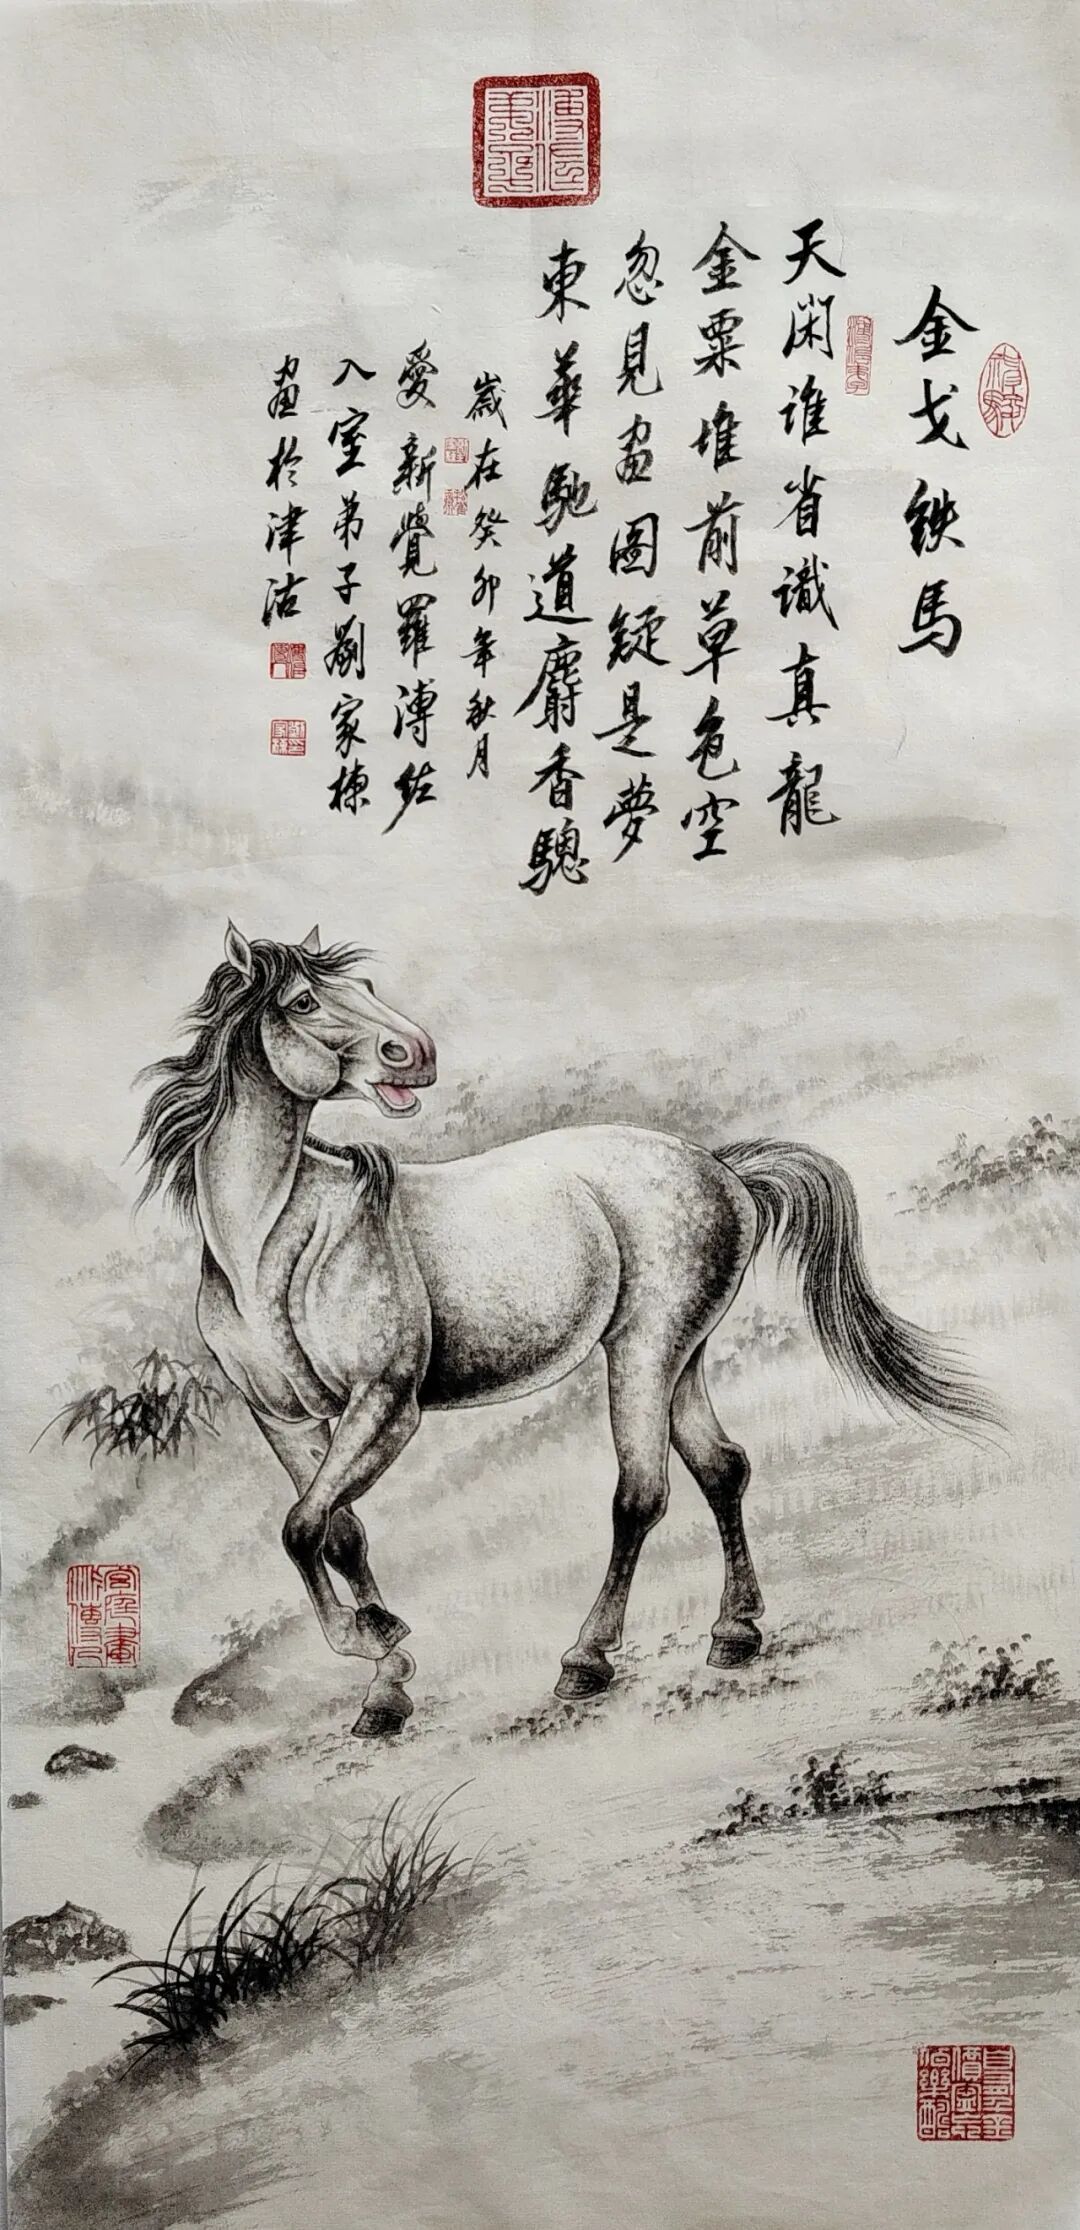 金戈鉄馬
天闲谁省識真龍
金粟堆前草色空
忽見畫圖疑是夢
東華馳道麝香驄
歲在癸卯年秋月
愛新覺羅溥佐
入室弟子劉家棟
畫於津沽